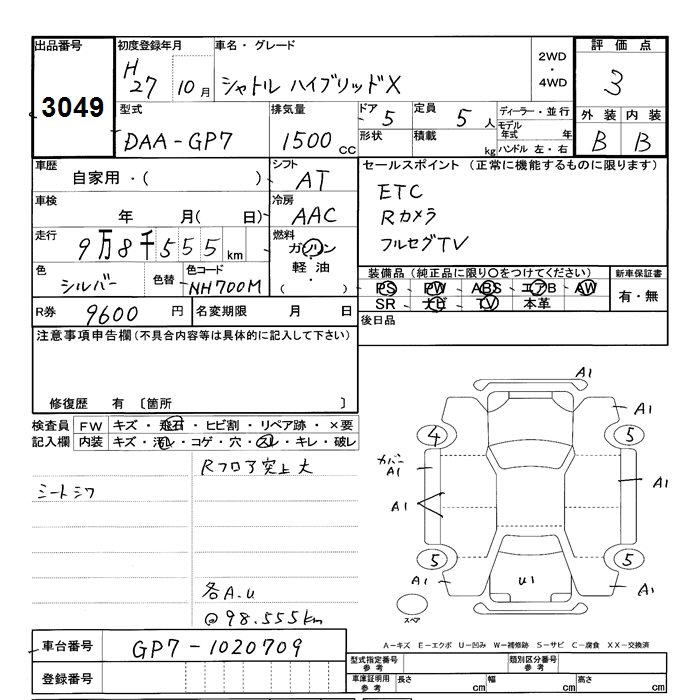 出品番号 初度登録年月 車名・グレード 2WD・4WD 評価点
3049 H27 10月 シャトル ハイブリッドX 3
型式 排気量 ドア 5 定員 5人 ディーラー・並行 外装 内装
DAA-GP7 1500cc 形状 積載 kg モデル年式 年 B B
ハンドル 左・右
車歴 シフト セールスポイント (正常に機能するものに限ります)
自家用・( ) AT ETC
車検 冷房 Rカメラ
年 月( 日) AAC フルセグTV
走行 燃料
9万8千555km ガソリン
軽油・
( )
色 色替 色コード 装備品(純正品に限り○をつけてください) 新車保証書
シルバー NH700M PS PW ABS エアB AW 有・無
SR ナビ TV 本革
R券 9600円 名変期限 月 日 後日品
注意事項申告欄(不具合内容等は具体的に記入して下さい)
修復歴 有 〔箇所 〕
検査員 FW キズ・飛石・ヒビ割・リペア跡・×要
記入欄 内装 キズ・汚レ・コゲ・穴・スレ・キレ・破レ
Rフロア突上大
シートシワ
各A.U
@98.555km
A1
A1
4 5
カバー
A1
A1 A1
5 5
A1 U1 A1
スペア
A-キズ E-エクボ U-凹み W-補修跡 S-サビ C-腐食 XX-交換済
車台番号 GP7-1020709
登録番号
型式指定番号 参考 類別区分番号 参考
車庫証明用 参考 長さ cm 幅 cm 高さ cm